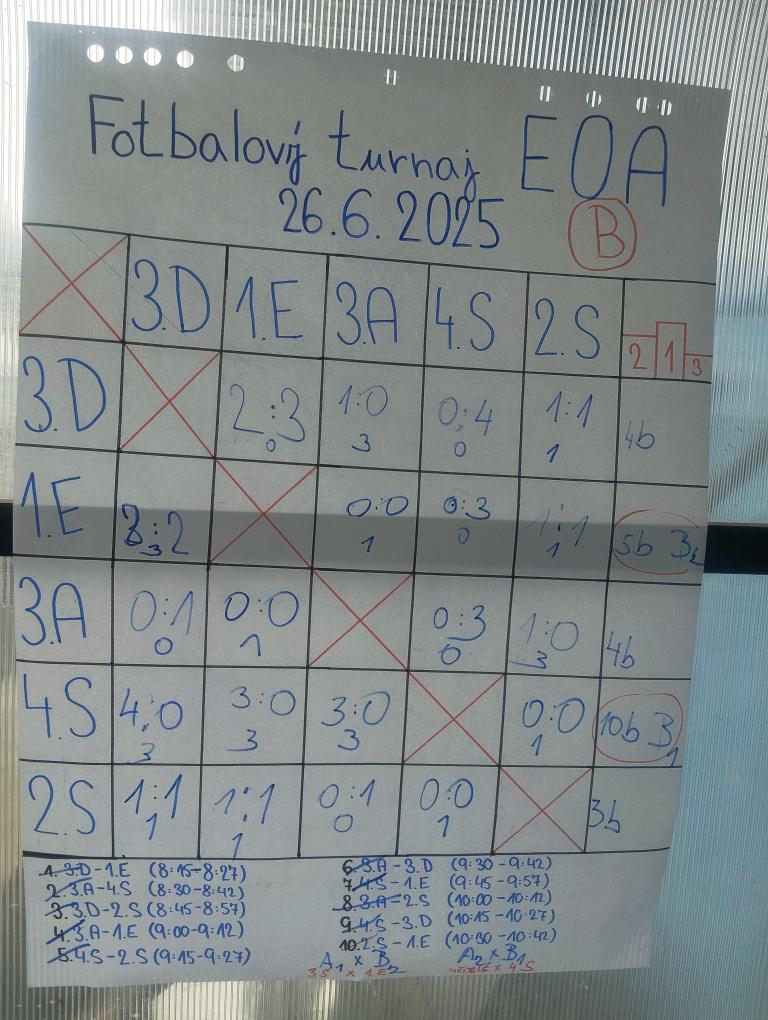 Fotbalový turnaj EOA
26.6.2025 B
3.D 1.E 3.A 4.S 2.S 2 1 3
3.D 2:3 0 1:0 3 0:4 0 1:1 1 4b
1.E 3:2 3 0:0 1 0:3 0 1:1 1 5b B2
3.A 0:1 0 0:0 1 0:3 0 1:0 3 4b
4.S 4:0 3 3:0 3 3:0 3 0:0 1 10b B1
2.S 1:1 1 1:1 1 0:1 0 0:0 1 3b
1. 3.D-1.E (8:15-8:27)
2. 3.A-4.S (8:30-8:42)
3. 3.D-2.S (8:45-8:57)
4. 3.A-1.E (9:00-9:12)
5. 4.S-2.S (9:15-9:27)
6. 3.A-3.D (9:30-9:42)
7. 4.S-1.E (9:45-9:57)
8. 3.A-2.S (10:00-10:12)
9. 4.S-3.D (10:15-10:27)
10. 2.S-1.E (10:30-10:42)
A1 x B2 A2 x B1
3.S x 1.E učitelé x 4.S